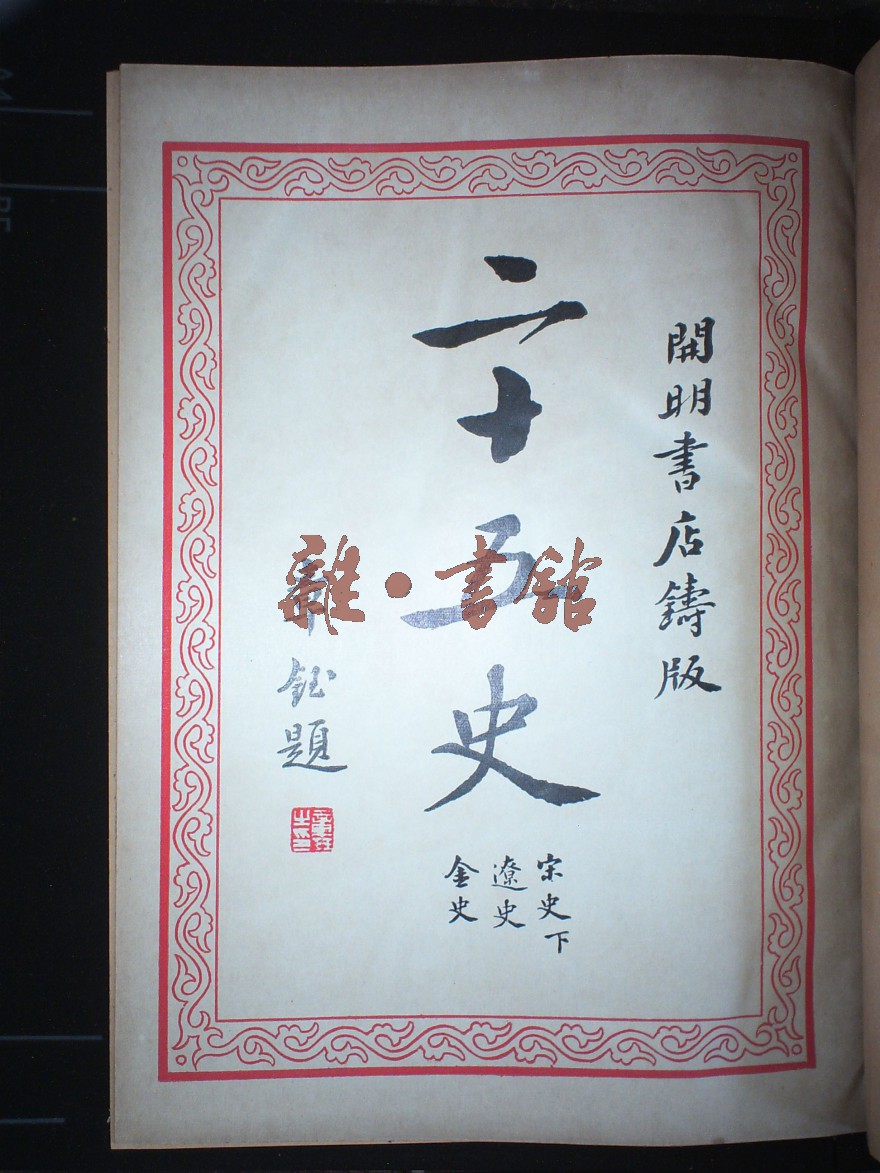 開明書店鑄版
二十五史
宋史下
遼史
金史
鈺題
雜·書館